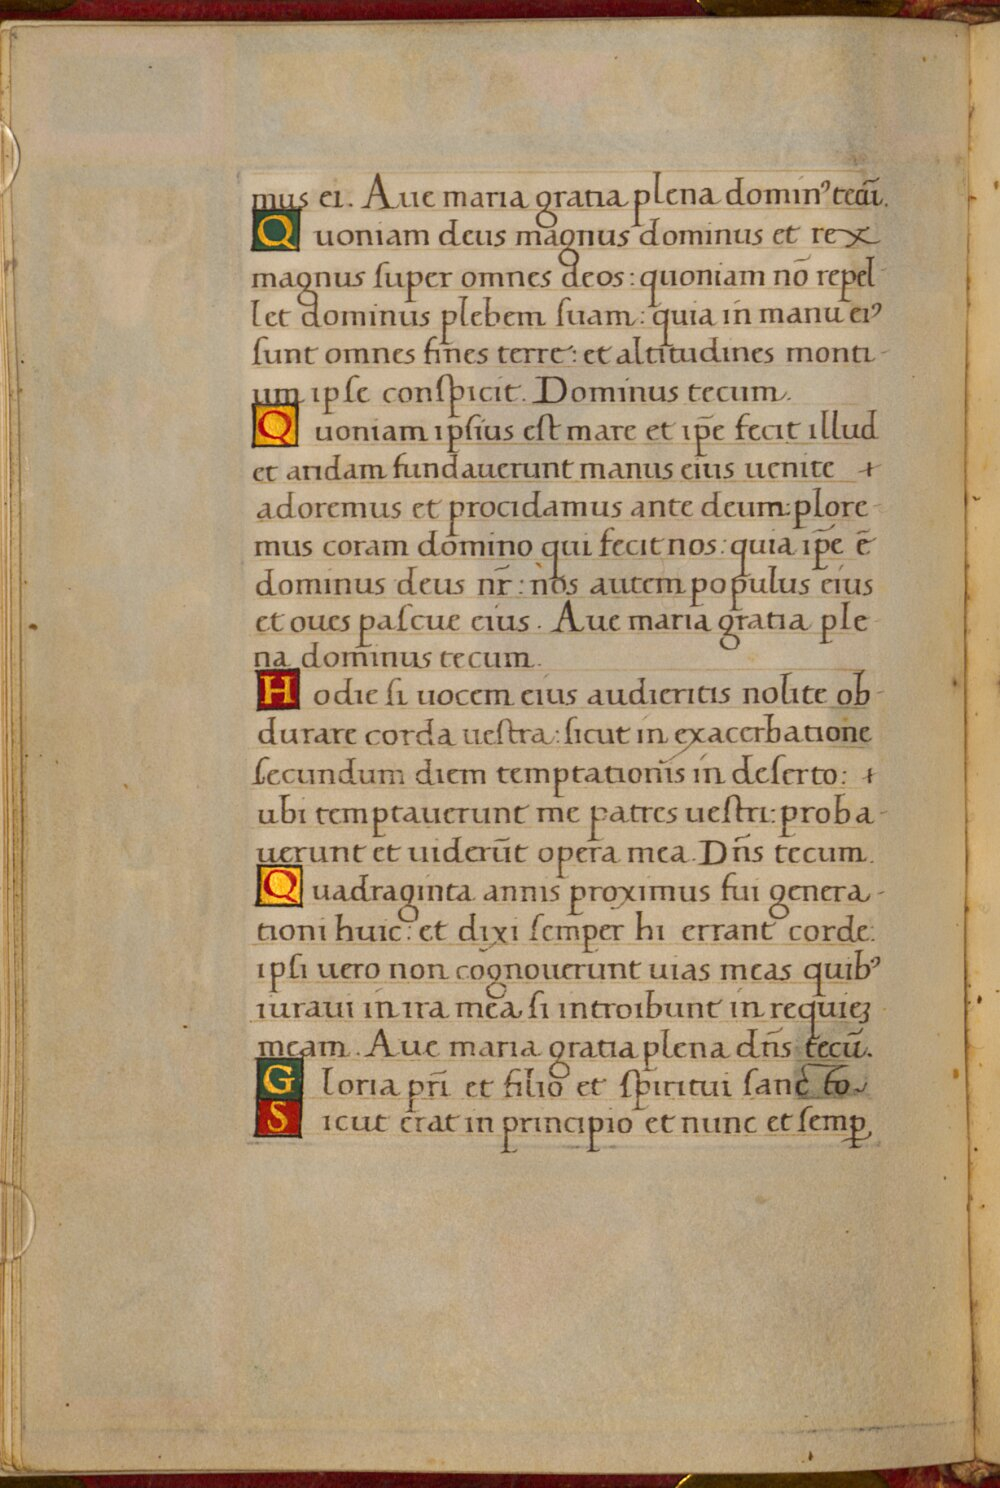 mus ei. Aue maria gratia plena dominꝰ tecū.
Quoniam deus magnus dominus et rex
magnus ſuper omnes deos: quoniam nō repel
let dominus plebem ſuam: quia in manu eiꝰ
ſunt omnes fines terre: et altitudines monti-
um ipſe conſpicit. Dominus tecum.
Quoniam ipſius eſt mare et ip̄e fecit illud
et aridam fundauerunt manus eius uenite +
adoremus et procidamus ante deum: plore-
mus coram domino qui fecit nos: quia ip̄e ē
dominus deus nr̄: nos autem populus eius
et oues paſcue eius. Aue maria gratia ple-
na dominus tecum.
Hodie ſi uocem eius audieritis nolite ob-
durare corda ueſtra: ſicut in exacerbatione
ſecundum diem temptationis in deſerto: +
ubi temptauerunt me patres ueſtri: proba-
uerunt et uiderūt opera mea. Dn̄s tecum.
Quadraginta annis proximus fui genera-
tioni huic: et dixi ſemper hi errant corde:
ipſi uero non cognouerunt uias meas quibꝰ
iuraui in ira mea ſi introibunt in requieꝫ
meam. Aue maria gratia plena dn̄s tecū.
Gloria pr̄i et filio et ſpiritui ſancto
Sicut erat in principio et nunc et ſemꝑ